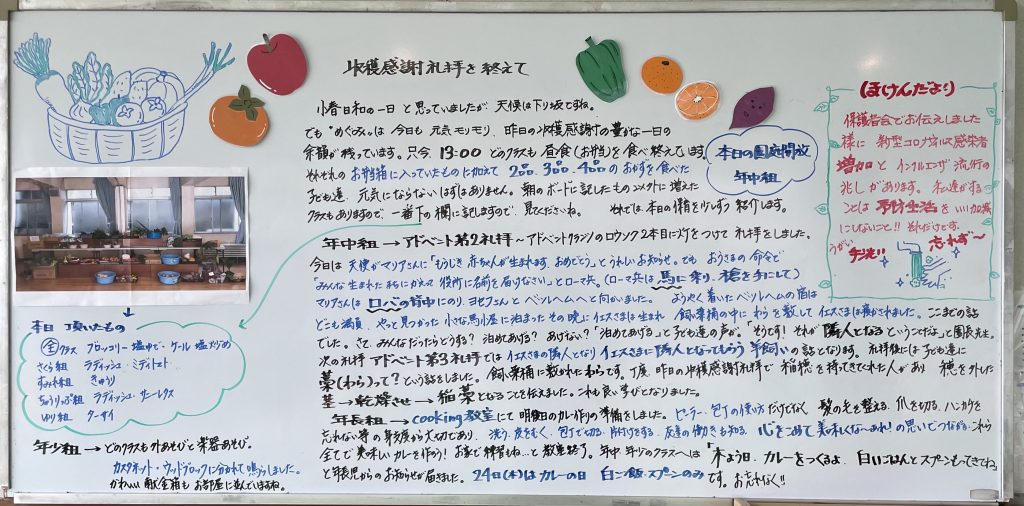 収穫感謝礼拝を終えて
小春日和の一日と思っていましたが 天候は下り坂ですね。
でも"めぐみ"は今日も元気モリモリ、昨日の収穫感謝の豊かな一日の
余韻が残っています。只今、13:00 どのクラスも昼食(お弁当)を食べ終えて
それぞれのお弁当箱に入っていたものに加えて 2品、3品、4品のおかずを食べた
子ども達 元気にならないはずはありません。朝のボードに記したもの以外に増えた
クラスもありますので 一番下の欄に記しますので、見てくださいね。 それでは、本日の保育を少しずつ紹介します。
本日の園庭開放
年中組
(ほけんだより)
保護者会でお伝えしました
様に 新型コロナウイルス感染者
増加と インフルエンザ流行の
兆しがあります。私達がする
ことは 予防生活をいい加減
にしないこと!! それだけです。
うがい
手洗い
忘れず〜
年中組→アドベント第2礼拝〜アドベントクランツのロウソク2本に灯をつけて 礼拝をしました。
今日は天使がマリアさんに「もうじき赤ちゃんが生まれます。おめでとう」とうれしいお知らせ。でも おうさまの命令で
「みんな生まれたまちにかえって役所に名前を届けなさい」とローマ兵。(ローマ兵は馬に乗り、槍を手にして)
マリアさんはロバの背中にのり、ヨセフさんと ベツレヘムへと向かいました。 ようやく着いたベツレヘムの宿は
どこも満員、やっと見つかった小さな馬小屋に泊まったその晩にイエスさまは生まれ 飼葉桶の中にわらを敷いてイエスさまは寝かされました。ここまでの話
でした。さて、みんなだったらどうする? 泊めてあげる? あげない?「泊めてあげる」と子ども達の声が。「そうです! それが隣人となるということだよ」と園長先生。
次の礼拝アドベント第3礼拝ではイエスさまの隣人となり イエスさまに隣人となってもらう羊飼いの話となります。礼拝後には子ども達に
藁(わら)って?という話をしました。飼葉桶に敷かれたわらです。丁度、昨日の収穫感謝礼拝で稲穂を持ってきてくれた人があり 穂を外した
茎→乾燥させ→稲藁となることを伝えました。これも良い学びとなりました。
年長組→cooking教室にて 明後日のカレー作りの準備をしました。ピーラー、包丁の使い方だけでなく 髪の毛を整える、爪を切る、ハンカチを
忘れない等の身支度から大切であり、洗う、皮をむく、包丁で切る、片付けをする、友達の働きも知る、心をこめて美味しくな〜あれ!の思いでつながる。これら
全てで美味しいカレーを作ろう!お家で練習もね…と教室終了。年中 年少のクラスへは「木よう日、カレーをつくるよ、白いごはんとスプーンもってきてね」
と年長児からのお知らせが届きました。24日(木)はカレーの日 白ご飯・スプーンのみです。お忘れなく!!
本日 頂いたもの
全クラス ブロッコリー塩ゆで・ケール塩炒め
さくら組 ラディッシュ・ミディトマト
すみれ組 きゅうり
ちゅうりっぷ組 ラディッシュ・サニーレタス
ゆり組 ターサイ
年少組→どのクラスも外あそびと楽器あそび。
カスタネット・ウッドブロックに分かれて鳴らしました。
かわいい献金箱もお部屋に並んでいますね。